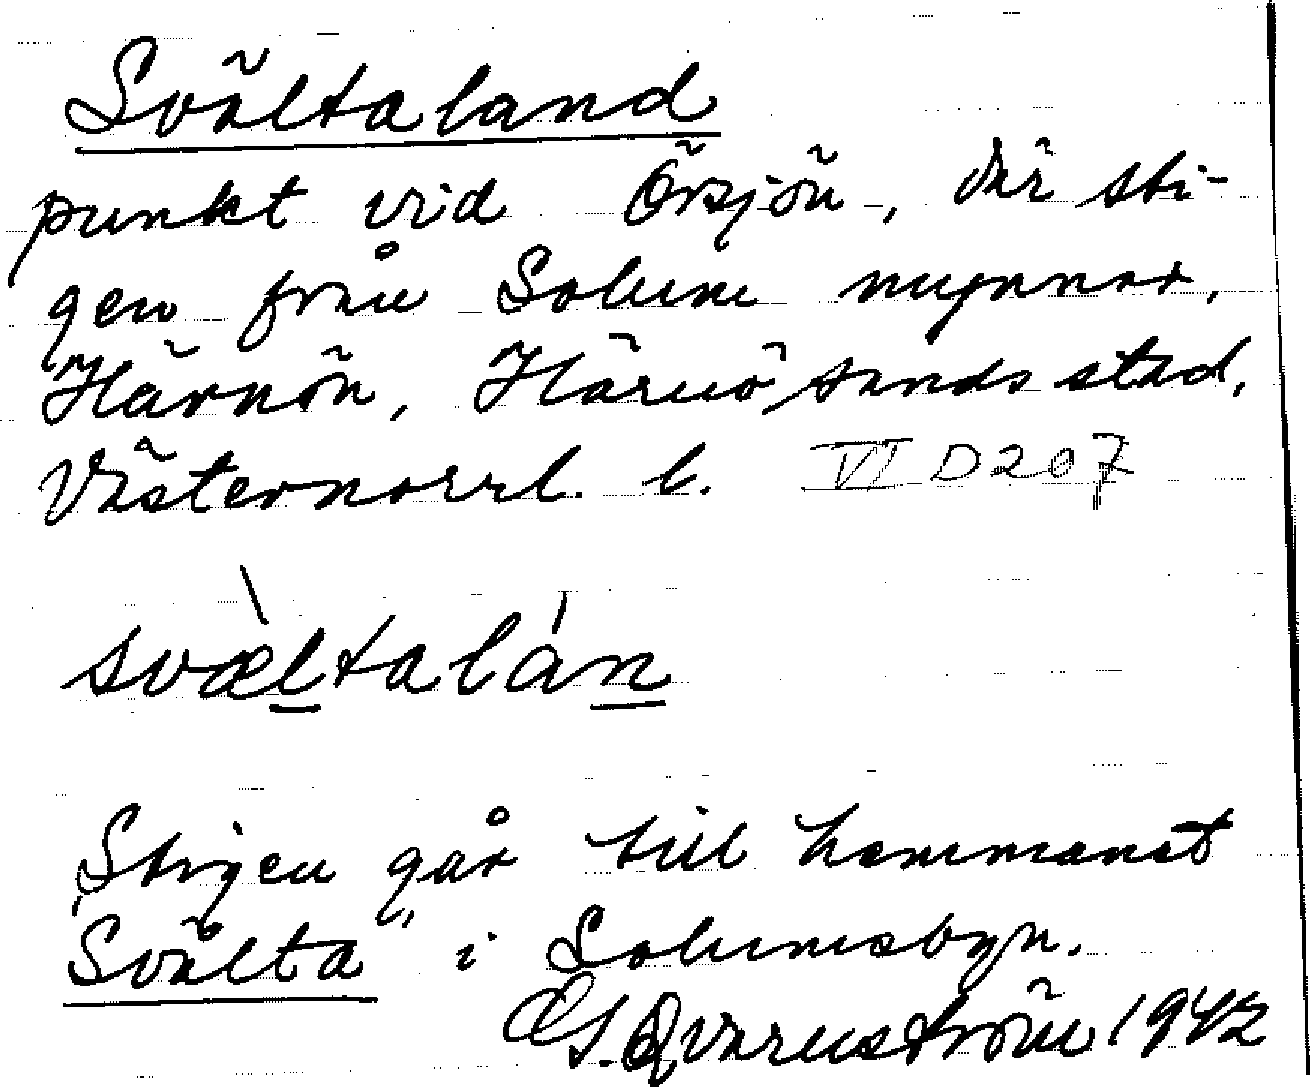 Svältaland
punkt vid Örsjön, där sti-
gen från Solum mynnar,
Härnön, Härnösands stad,
Västernorrl. l. VI D207
svæ̀ltalán
Stigen går till hemmanet
"Svälta" i Solumsbyn.
G. S. Qvarnström 1942